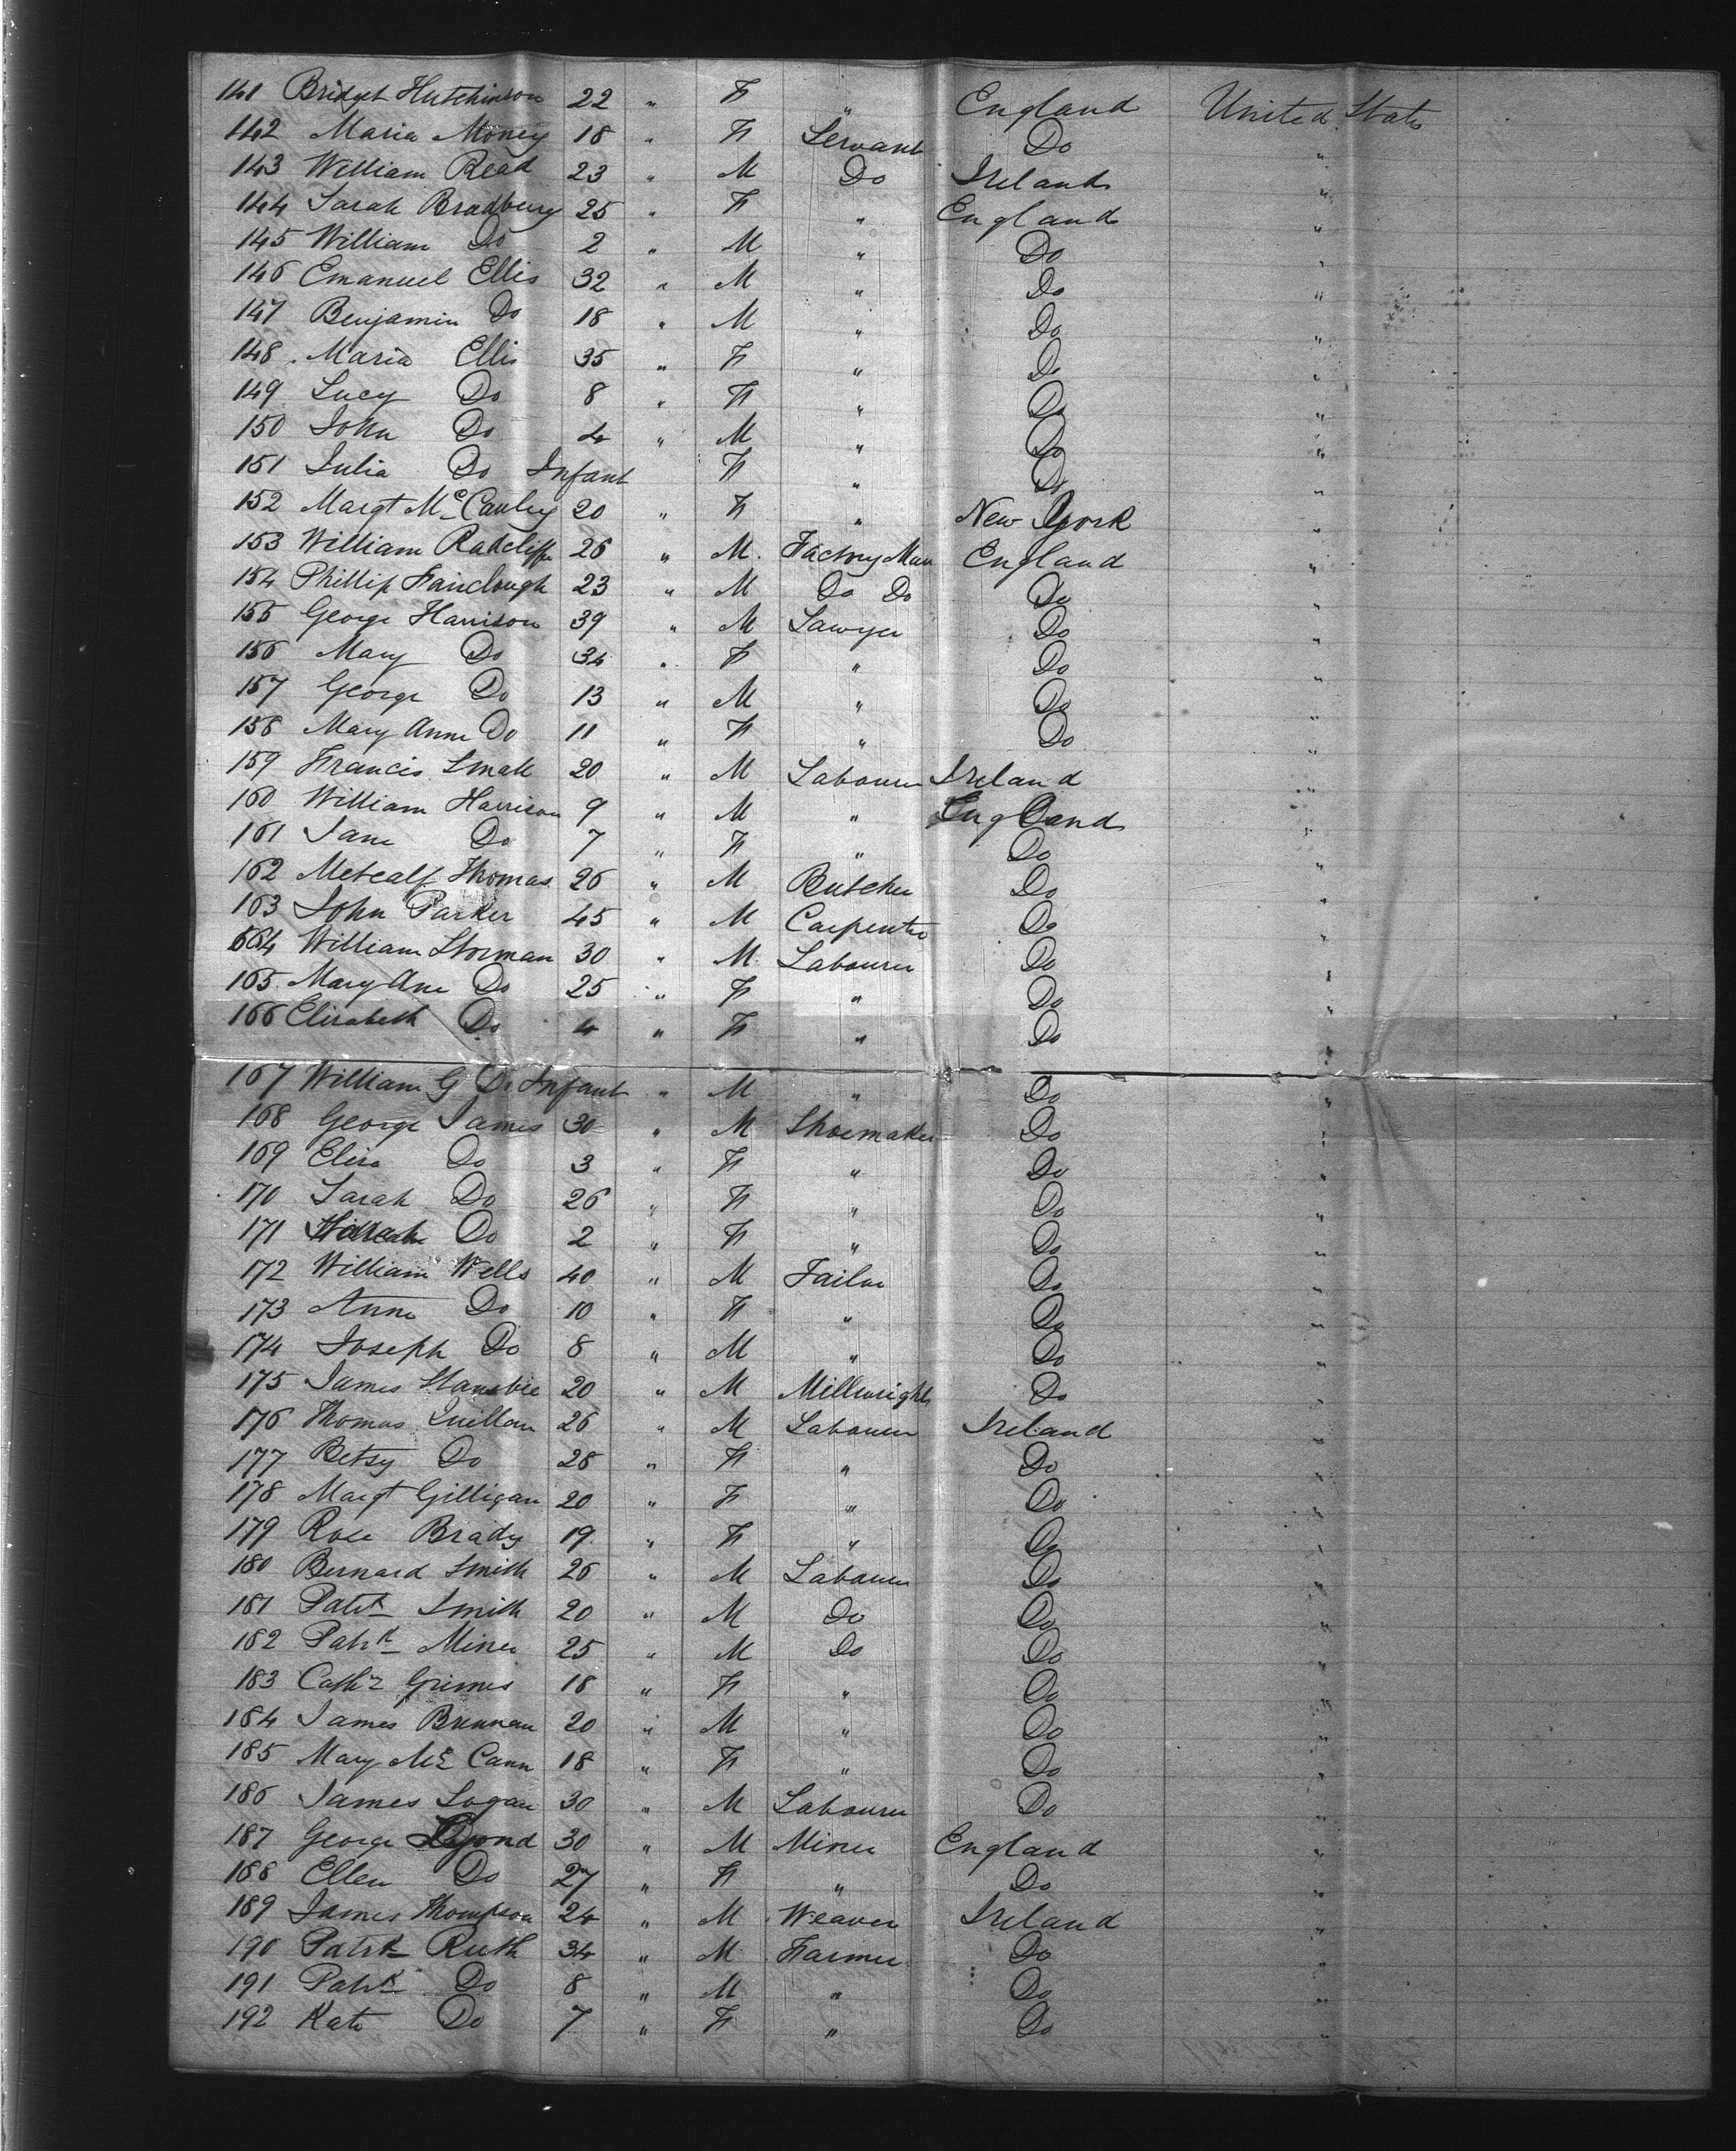 141 Bridget Hutchinson 22 " F " England United States
142 Maria Money 18 " F Servant Do "
143 William Read 23 " M Do Ireland "
144 Sarah Bradbury 25 " F " England "
145 William Do 2 " M " Do "
146 Emanuel Ellis 32 " M " Do "
147 Benjamin Do 18 " M " Do "
148 Maria Ellis 35 " F " Do "
149 Lucy Do 8 " F " Do "
150 John Do 4 " M " Do "
151 Julia Do Infant F " Do "
152 Margt McCauley 20 " F " New York "
153 William Radcliffe 26 " M Factory Man England "
154 Phillip Fairclough 23 " M Do Do Do "
155 George Harrison 39 " M Sawyer Do "
156 Mary Do 34 " F " Do "
157 George Do 13 " M " Do "
158 Mary Anne Do 11 " F " Do "
159 Francis 20 " M Labourer Ireland "
160 William Harrison 9 " M " England "
161 Jane Do 7 " F " Do "
162 Metcalf Thomas 26 " M Butcher Do "
163 John Parker 45 " M Carpenter Do "
164 William Storman 30 " M Labourer Do "
165 Mary Ann Do 25 " F " Do "
166 Elizabeth Do 4 " F " Do "
167 William G Do Infant " M " Do "
168 George James 30 " M Shoemaker Do "
169 Eliza Do 3 " F " Do "
170 Sarah Do 26 " F " Do "
171 Do 2 " F " Do "
172 William Wells 40 " M Tailor Do "
173 Anne Do 10 " F " Do "
174 Joseph Do 8 " M " Do "
175 James Stansbie 20 " M Millwright Do "
176 Thomas Quillan 26 " M Labourer Ireland "
177 Betsy Do 28 " F " Do "
178 Margt Gilligan 20 " F " Do "
179 Rose Brady 19 " F " Do "
180 Bernard Smith 26 " M Labourer Do "
181 Patk Smith 20 " M Do Do "
182 Patrk Miner 25 " M Do Do "
183 Cathr Grimes 18 " F " Do "
184 James Brennan 20 " M " Do "
185 Mary Mc Cann 18 " F " Do "
186 James Logan 30 " M Labourer Do "
187 George 30 " M Miner England "
188 Ellen Do 27 " F " Do "
189 James Thompson 24 " M Weaver Ireland "
190 Patrk Ruth 34 " M Farmer Do "
191 Patrk Do 8 " M " Do "
192 Kate Do 7 " F " Do "